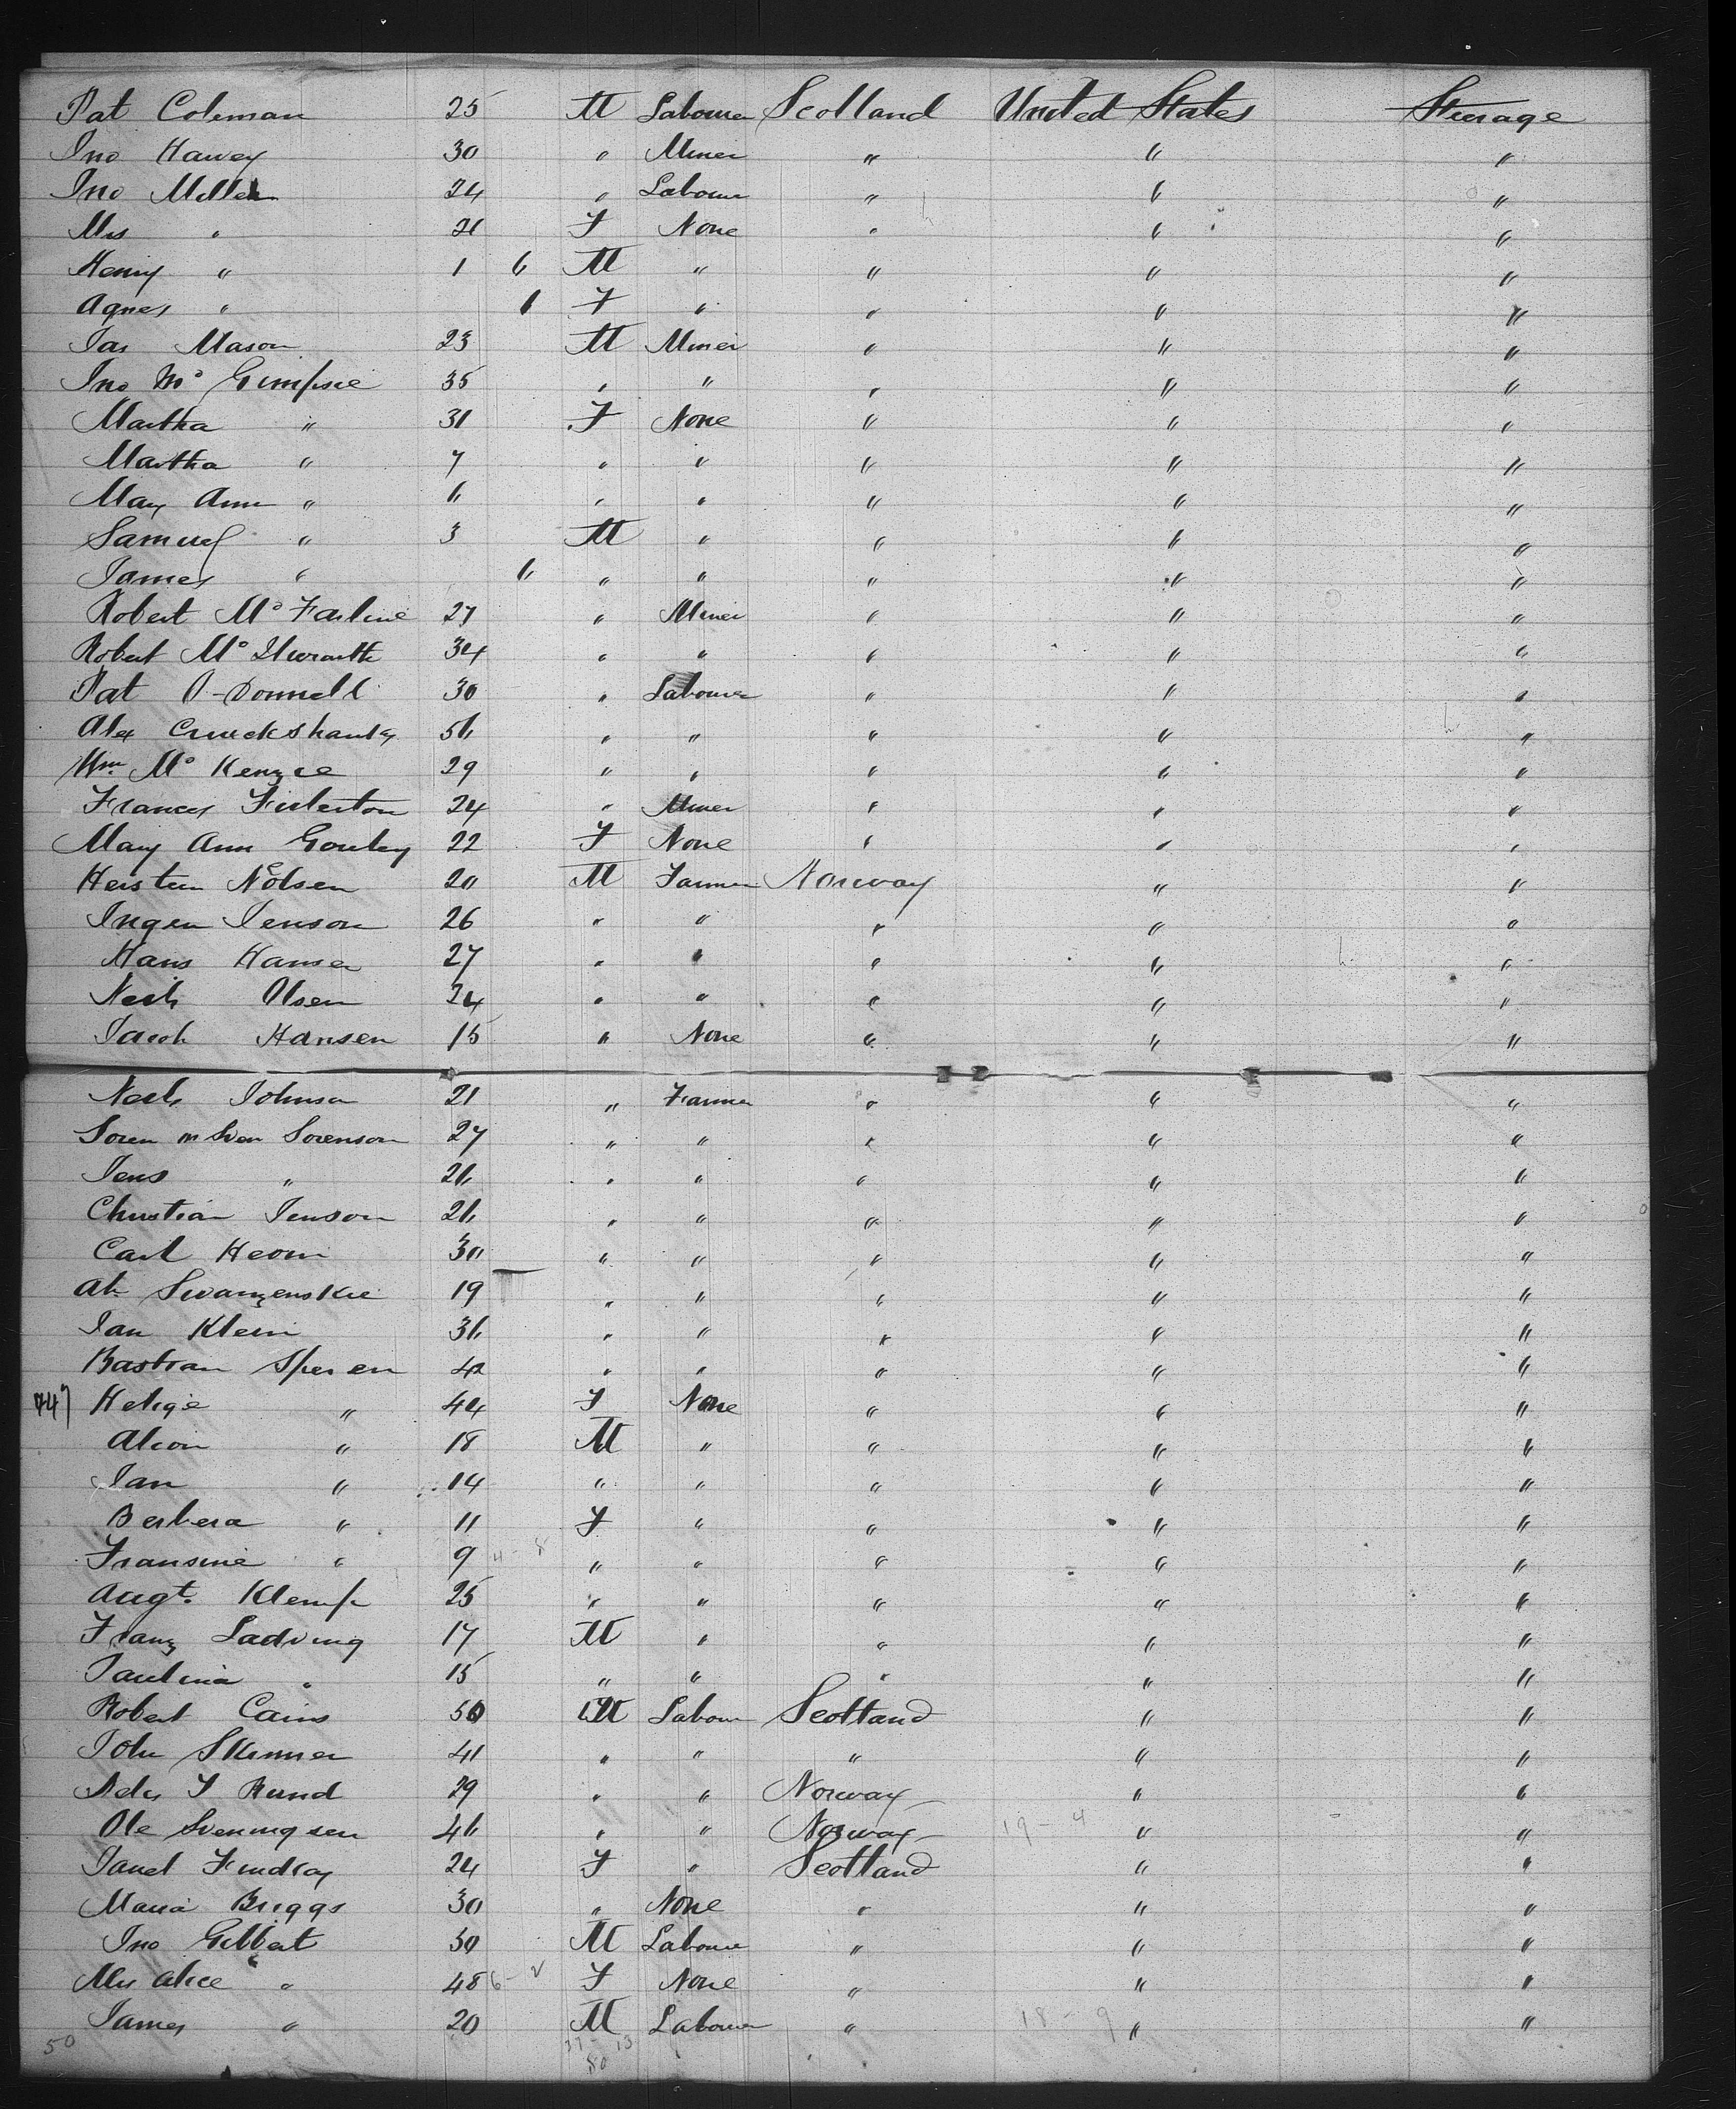 Pat Coleman 25 M Labourer Scotland United States Steerage
Jno Harvey 30 " Miner " " "
Jno Miller 24 " Labourer " " "
Mrs " 21 F None " " "
Henry " 1 6 M " " " "
Agnes " 6 F " " " "
Jas Mason 23 M Miner " " "
Jno Mc Gimpsie 35 " " " " "
Martha " 31 F None " " "
Martha " 7 " " " " "
Mary Ann " 6 " " " " "
Samuel " 3 M " " " "
James " 6 " " " " "
Robert Mc Farline 27 " Miner " " "
Robert Mc Ilwraith 34 " " " " "
Pat O-Donnell 30 " Labourer " " "
Alex Cruckshanks 56 " " " " "
Wm Mc Kenzie 29 " " " " "
Frances Fullerton 24 " Miner " " "
Mary Ann Gourley 22 F None " " "
Nolsen 20 M Farmer Norway " "
Jenson 26 " " " " "
Hans Hansen 27 " " " " "
Neils Olsen 24 " " " " "
Jacob Hansen 15 " None " " "
Neils Johnson 21 " Farmer " " "
Soren or Sven Sorenson 27 " " " " "
Jens " 26 " " " " "
Christian Jenson 26 " " " " "
Carl 30 " " " " "
19 " " " " "
Jan Klein 36 " " " " "
Bastian Speren 42 " " " " "
747 Heligje " 44 F None " " "
" 18 M " " " "
Jan " 14 " " " " "
Berbera " 11 F " " " "
Fransine " 9 4 - 8 " " " " "
Augt. Klemp 25 " " " " "
Franz Ladving 17 M " " " "
Paulina " 15 " " " " "
Robert Cairns 50 M Labour Scotland " "
John Skinner 41 " " " " "
29 " " Norway " "
Ole Sveningsen 46 " " Norway 19 - 4 " "
Janet Findlay 24 F " Scotland " "
Maria Briggs 30 " None " " "
Jno Gilbert 50 M Labourer " " "
Mrs Alice " 48 6 - 2 F None " " "
James " 20 M Labourer " 18 - 9 " "
50 37 - 13
50